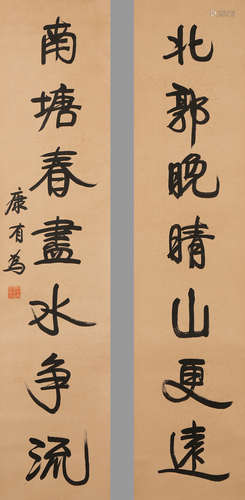 北郭晚晴山更遠
南塘春盡水争流
康有為